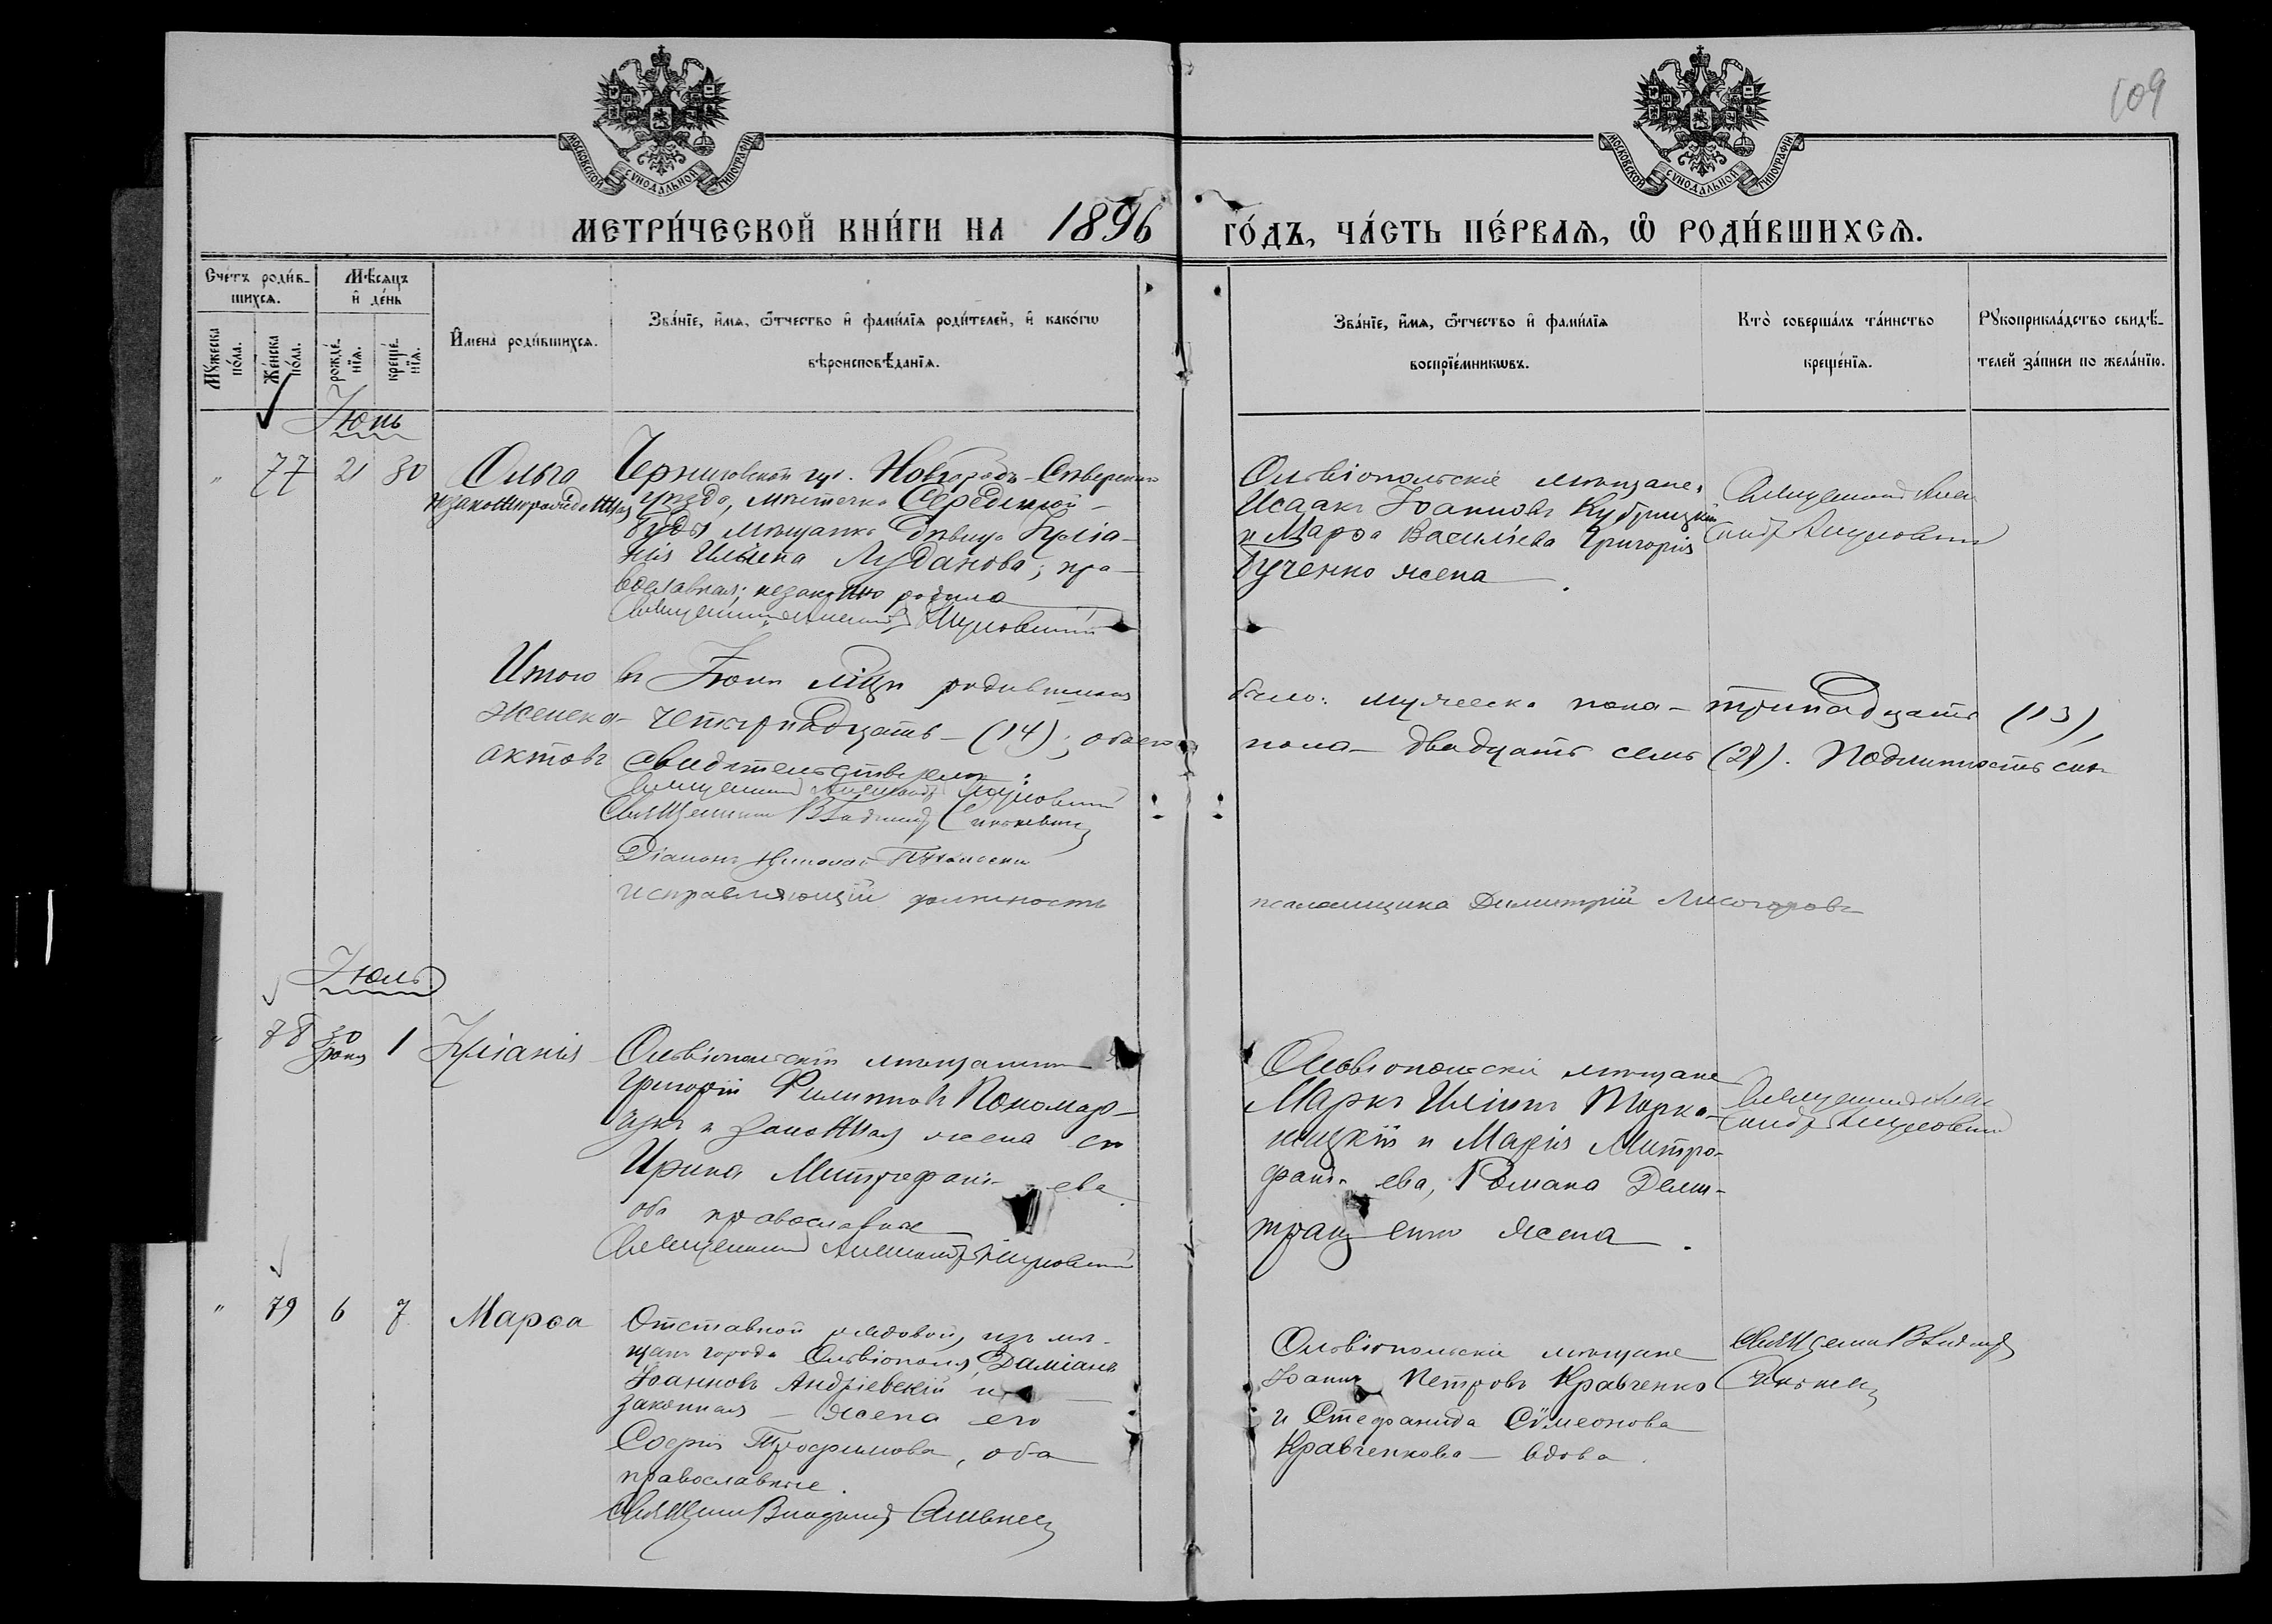 109
МОСКОВСКОЙ СѴНОДАЛЬНОЙ ТИПОГРАФІИ
МОСКОВСКОЙ СѴНОДАЛЬНОЙ ТИПОГРАФІИ
МЕТРИ́ЧЕСКОЙ КНИ́ГИ НА 1896 ГО́ДЪ, ЧА́СТЬ ПЕ́РВАѦ, Ѽ РОДИ́ВШИХСѦ.
Сче́тъ роди́в-
шихсѧ.
Мѣ́сѧцъ
и҆ де́нь
Мꙋ́жеска
по́ла.
Же́нска
по́ла.
рожде́-
нїѧ.
креще́-
нїѧ.
И҆мена̀ роди́вшихсѧ.
Зва́нїе, и҆́мѧ, ѻ҆́тчество и҆ фами́лїѧ роди́телей, и҆ како́гѡ
вѣроисповѣ́данїѧ.
Зва́нїе, и҆́мѧ, ѻ҆́тчество и҆ фами́лїѧ
воспрїе́мникѡвъ.
Кто̀ соверша́лъ та́инство
креще́нїѧ.
Рꙋкоприкла́дство свидѣ́-
телей за́писи по жела́нїю.
Іюнь
" 77 21 30 Ольга
незаконнорожденная
Черниговской губ. Новгородъ-Сѣверскаго
уѣзда, мѣстечка Середином-
Буды мѣщанка дѣвица Іуліа-
нія Ильина Луданова; пра-
вославная; незаконно родила
Священникъ Александръ
Ольвіопольскіе мѣщане,
Исаакъ Іоанновъ Кубрицкій
и Марѳа Васильева Григорія
Бученко жена.
Священникъ Алек-
сандръ
Итого въ Іюнѣ мцѣ родившихся было: мужеска пола - тринадцать (13),
женска - четырнадцать - (14); обоего пола - двадцать семь (27). Подлинность сихъ
актовъ свидѣтельствуемъ:
Священникъ Александръ
Священникъ Владимiръ
Діаконъ Николай
исправляющій должность псаломщика Димитрій Лисогоровъ
Іюль
" 78 30 Іюня 1 Іуліанія
Ольвіопольскій мѣщанинъ
Григорій Филипповъ Пономар-
чукъ и законная жена его
Ирина Митрофані- ева
оба православные
Священникъ Александръ
Ольвіопольскіе мѣщане
Маркъ Иліинъ
и Марія Митро-
фані- ева, Романа Деми-
тращ енко жена.
Священникъ Алек-
сандръ
" 79 6 7 Марѳа
Отставной рядовой, изъ мѣ-
щанъ города Ольвіополя, Даміанъ
Іоанновъ Андріевскій и
законная - жена его
Софія Трофимова, оба
православные.
Священникъ Владиміръ
Ольвіопольскіе мѣщане
Іоаннъ Петровъ Кравченко
и Стефанида Сѵмеонова
Кравченкова - вдова.
Священникъ Владиміръ